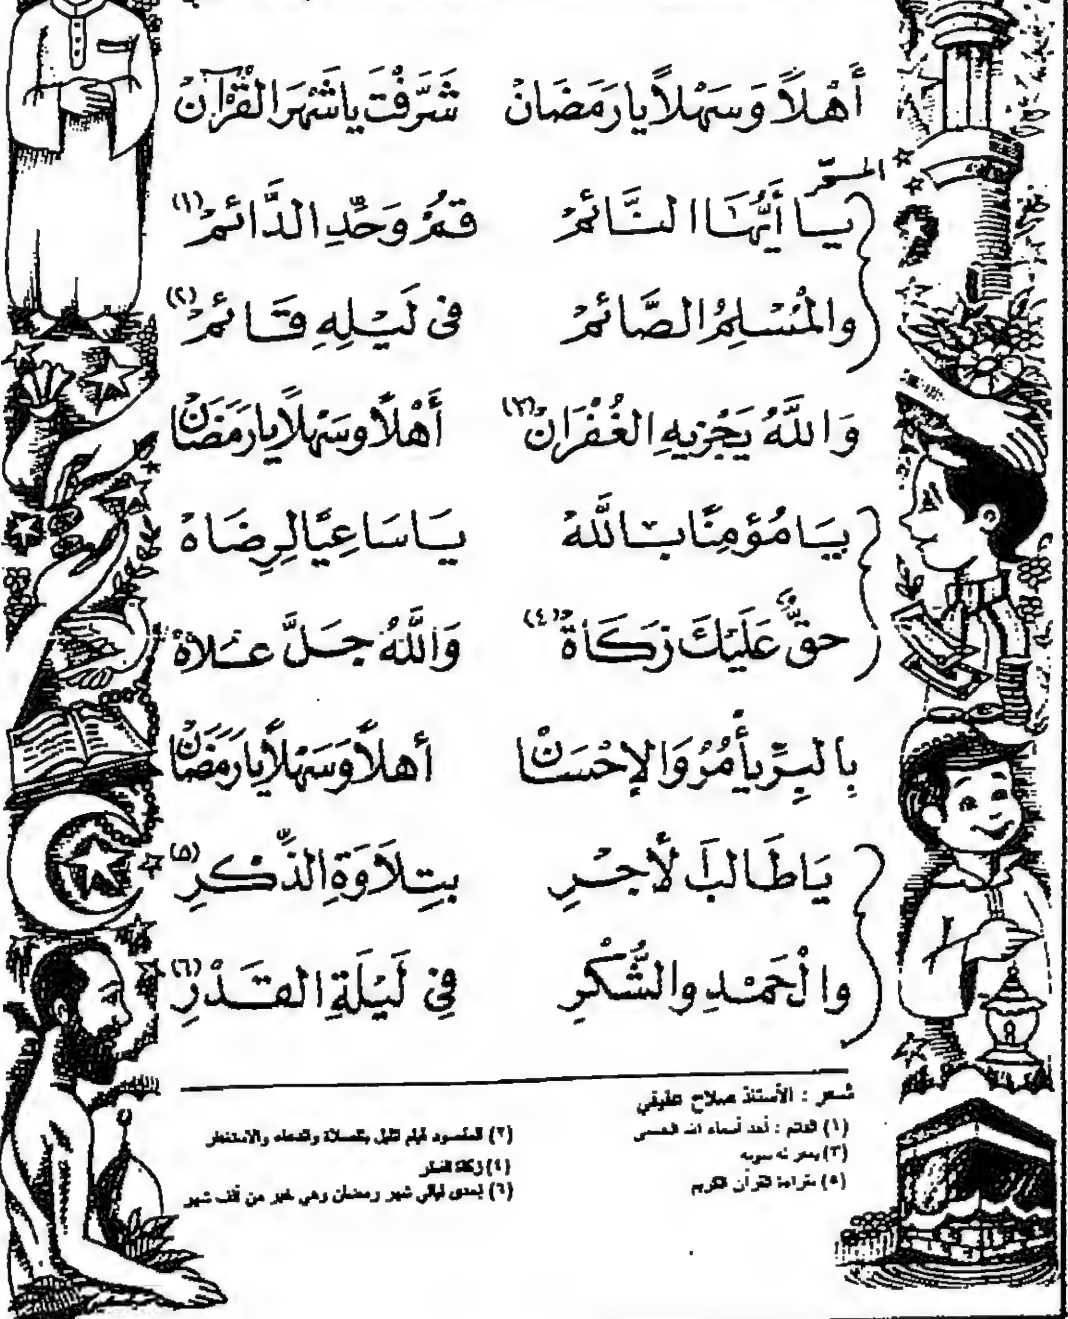 أَهْلاً وَسَهْلاً يا رَمَضَانْ شَرَّفْتَ يا شَهْرَ الْقُرْآنْ
المسحّر
يَا أَيُّهَا النَّائِمْ قُمْ وَحِّدِ الدَّائِمْ (١)
والمُسْلِمُ الصَّائِمْ فى لَيْلِهِ قَائِمْ (٢)
وَاللَّهُ يَجْزِيهِ الغُفْرَانْ (٣) أَهْلاً وسَهْلاً يا رَمَضَانْ
يَا مُؤمِنًا باللَّهْ يَا سَاعِيًا لِرِضَاهْ
حقٌّ عَلَيْكَ زَكَاةْ (٤) وَاللَّهُ جَلَّ عَلاهْ
بِالبِرِّ يأْمُرُ وَالإِحْسَانْ أهلاً وَسَهْلاً يا رَمَضَانْ
يَا طَالبَ الأَجْرِ بتِلاَوَةِ الذِّكْرِ (٥)
والْحَمْدِ والشُّكْرِ فِي لَيْلَةِ القَدْرِ (٦)
شعر : الأستاذ صلاح عفيفي
(١) الدائم : أحد أسماء الله الحسنى
(٢) المقصود قيام الليل بالصلاة والدعاء والاستغفار
(٣)
(٤) زكاة الفطر
(٥) بقراءة القرآن الكريم
(٦) إحدى ليالي شهر رمضان وهي خير من ألف شهر